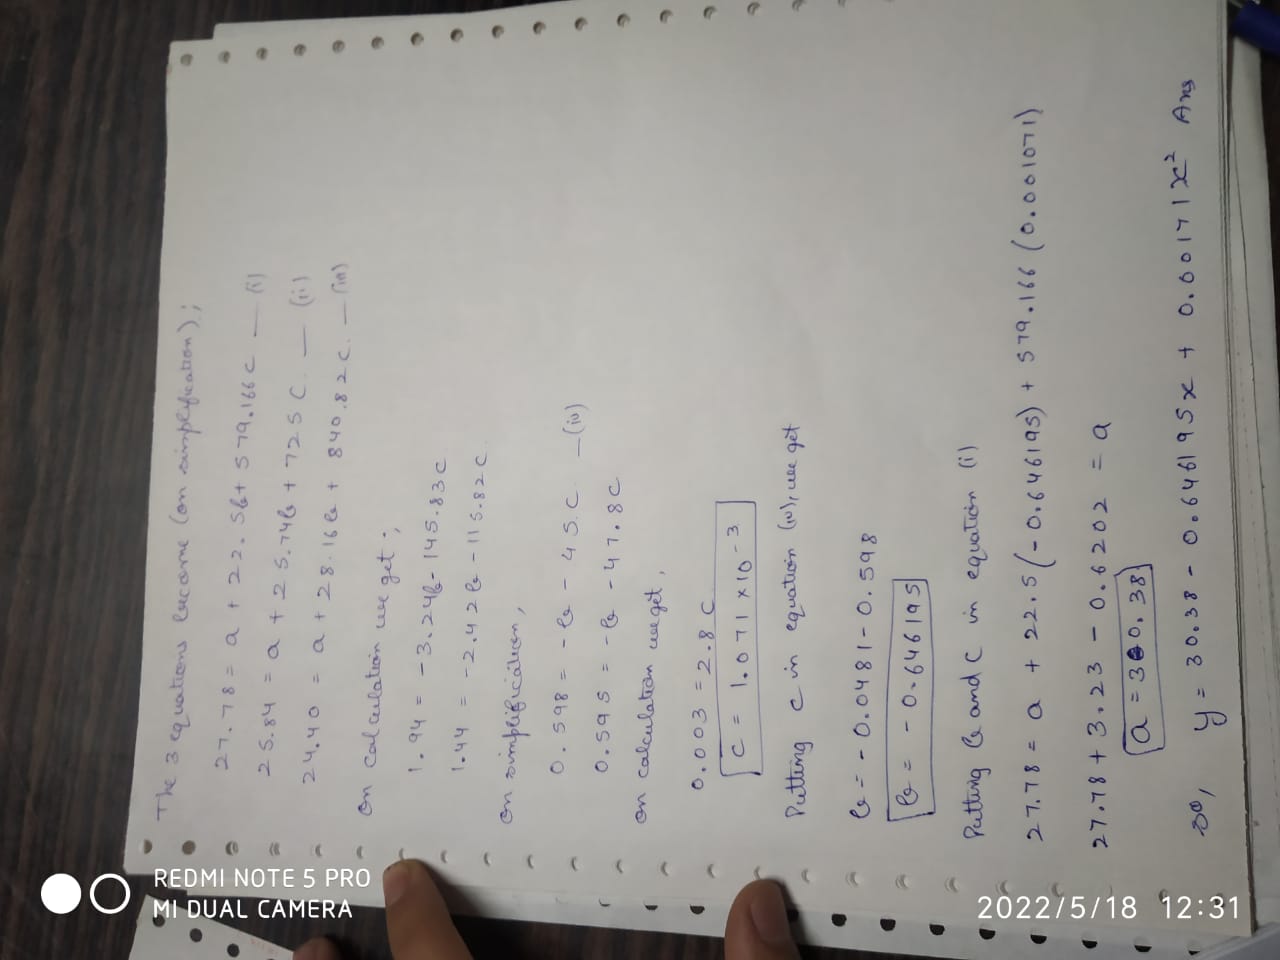 The 3 equations become (on simplification);
27.78 = a + 22.5b + 579.166c — (i)
25.84 = a + 25.74b + 725c. — (ii)
24.40 = a + 28.16b + 840.82c. — (iii)
on calculation we get;
1.94 = -3.24b - 145.83c
1.44 = -2.42b - 115.82c
on simplification,
0.598 = -b - 45.c — (iv)
0.595 = -b - 47.8c
on calculation we get,
0.003 = 2.8c
c = 1.071 × 10⁻³
Putting c in equation (iv), we get
b = - 0.0481 - 0.598
b = - 0.646195
Putting b and c in equation (i)
27.78 = a + 22.5(-0.646195) + 579.166(0.001071)
27.78 + 3.23 - 0.6202 = a
a = 30.38
so, y = 30.38 - 0.646195x + 0.00171x² Ans
REDMI NOTE 5 PRO
MI DUAL CAMERA
2022/5/18 12:31